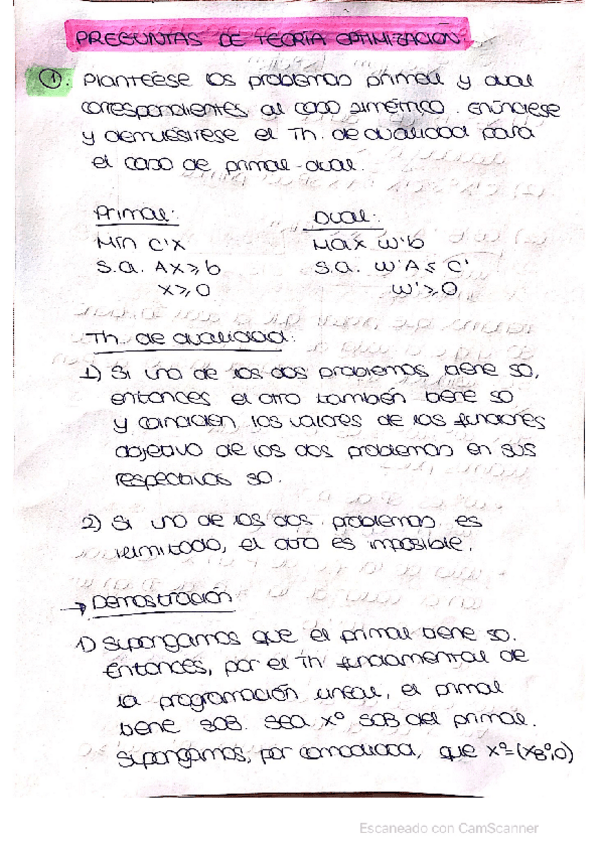 PREGUNTAS DE TEORÍA OPTIMIZACIÓN:
① Plantéese los problemas primal y dual
correspondientes al caso simétrico. Enúnciese
y demuéstrese el Th. de dualidad para
el caso de primal-dual.
Primal: Dual:
Min C'X Max W'b
S.a. AX≥b S.a. W'A≤C'
X≥0 W'≥0
Th. de dualidad:
1) Si uno de los dos problemas tiene SO,
entonces el otro también tiene SO
y coinciden los valores de las funciones
objetivo de los dos problemas en sus
respectivas SO.
2) Si uno de los dos problemas es
ilimitado, el otro es imposible.
→ Demostración
1) Supongamos que el primal tiene SO.
Entonces, por el Th fundamental de
la programación lineal, el primal
tiene SOB. Sea X⁰ SOB del primal.
Supongamos, por comodidad, que X⁰=(X_B⁰,0)
Escaneado con CamScanner